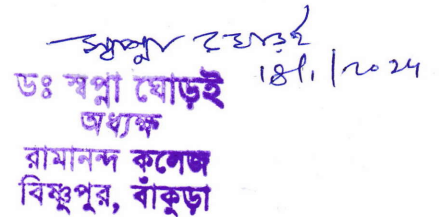 স্বপ্না ঘোড়ই
18/1/2024
ডঃ স্বপ্না ঘোড়ই
অধ্যক্ষ
রামানন্দ কলেজ
বিষ্ণুপুর, বাঁকুড়া